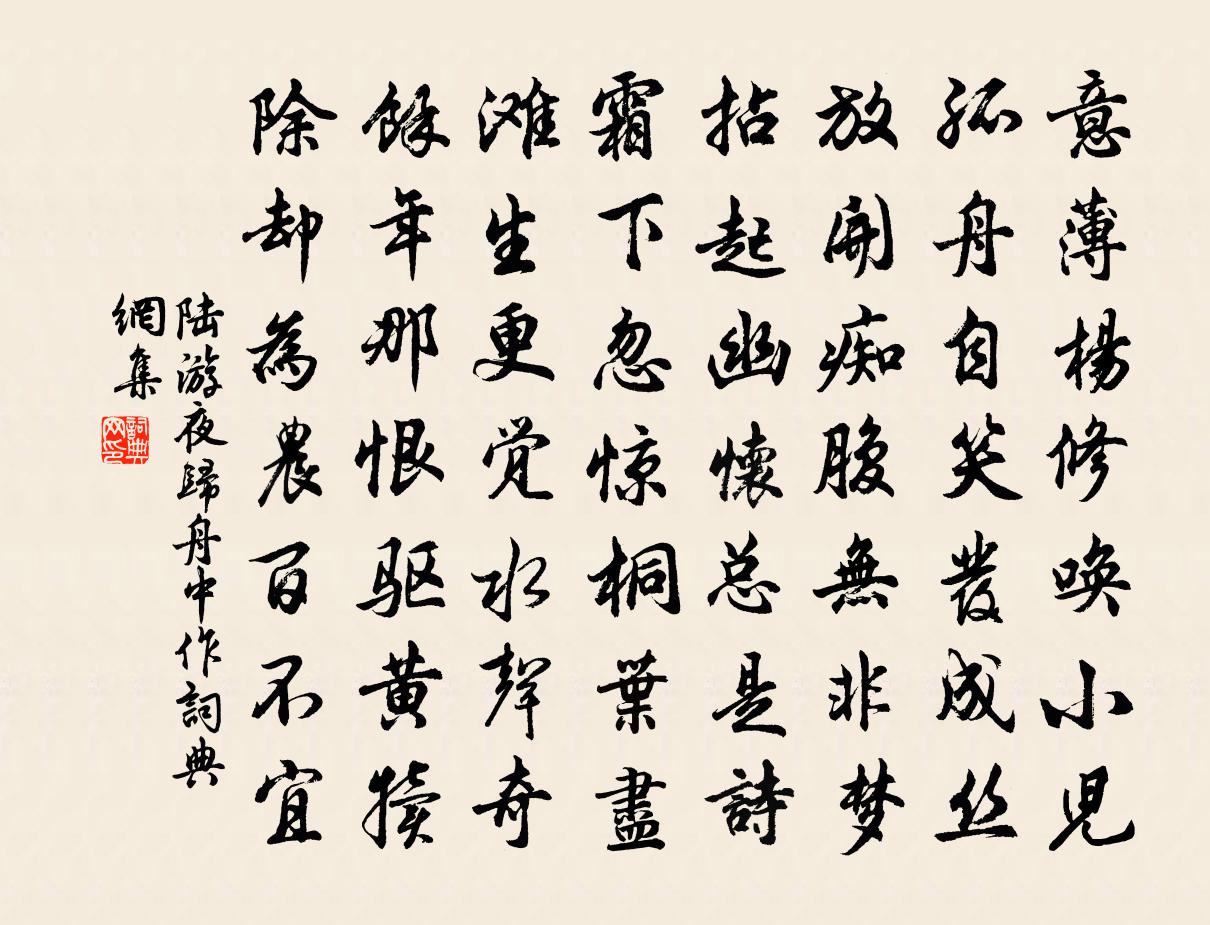 意薄楊修唤小児
孤舟自笑发成丝
放開痴腹無非梦
拈起幽懐总是詩
霜下忽惊桐葉盡
滩生更觉水聲奇
餘年那恨驱黄犊
除却為農百不宜
陆游夜歸舟中作詞典
網集
詞典
网印